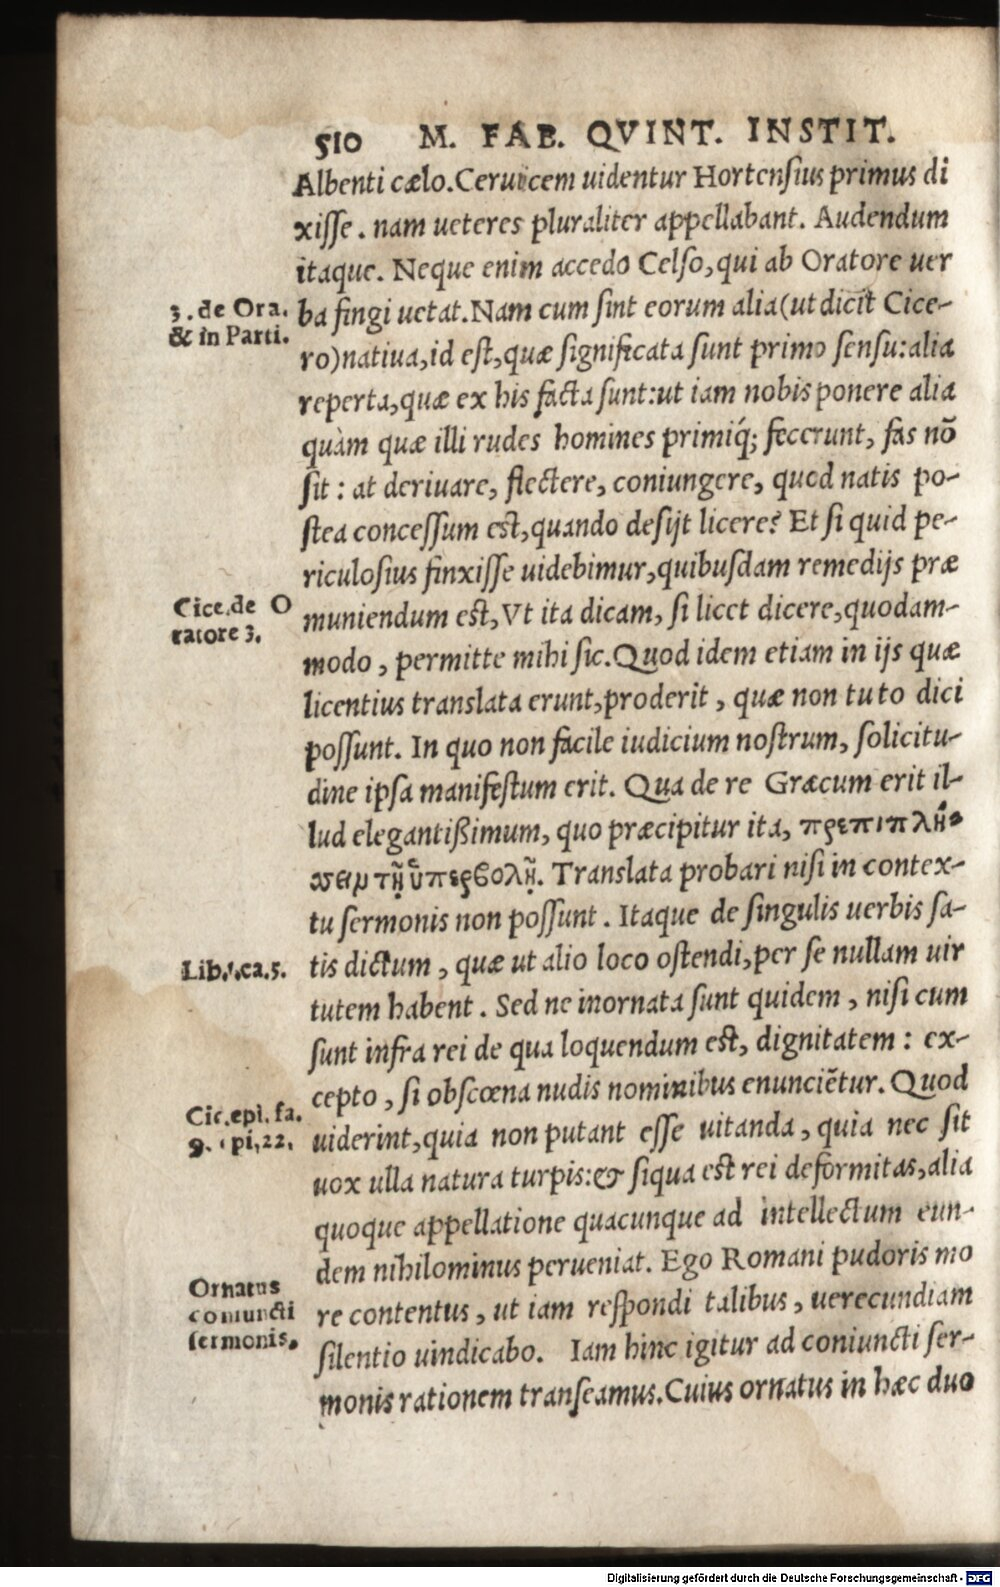 510 M. FAB. QVINT. INSTIT.
Albenti cælo. Ceruicem uidentur Hortensius primus di
xisse. nam ueteres pluraliter appellabant. Audendum
itaque. Neque enim accedo Celso, qui ab Oratore uer
3. de Ora.
& in Parti.
ba fingi uetat. Nam cum sint eorum alia (ut dicit Cice-
ro) natiua, id est, quæ significata sunt primo sensu: alia
reperta, quæ ex his facta sunt: ut iam nobis ponere alia
quàm quæ illi rudes homines primiq́; fecerunt, fas nō
sit: at deriuare, flectere, coniungere, quod natis po-
stea concessum est, quando desijt licere? Et si quid pe-
riculosius finxisse uidebimur, quibusdam remedijs præ
Cice. de O
ratore 3.
muniendum est, Vt ita dicam, si licet dicere, quodam-
modo, permitte mihi sic. Quod idem etiam in ijs quæ
licentius translata erunt, proderit, quæ non tuto dici
possunt. In quo non facile iudicium nostrum, solicitu-
dine ipsa manifestum erit. Qua de re Græcum erit il-
lud elegantißimum, quo præcipitur ita,
τῇ ὑπερβολῇ. Translata probari nisi in contex-
tu sermonis non possunt. Itaque de singulis uerbis sa-
Lib. 1. ca. 5.
tis dictum, quæ ut alio loco ostendi, per se nullam uir
tutem habent. Sed ne inornata sunt quidem, nisi cum
sunt infra rei de qua loquendum est, dignitatem: ex-
cepto, si obscœna nudis nominibus enunciētur. Quod
Cic. epi. fa.
9. epi, 22.
uiderint, quia non putant esse uitanda, quia nec sit
uox ulla natura turpis: & siqua est rei deformitas, alia
quoque appellatione quacunque ad intellectum eun-
dem nihilominus perueniat. Ego Romani pudoris mo
Ornatus
coniuncti
sermonis.
re contentus, ut iam respondi talibus, uerecundiam
silentio uindicabo. Iam hinc igitur ad coniuncti ser-
monis rationem transeamus. Cuius ornatus in hæc duo
Digitalisierung gefördert durch die Deutsche Forschungsgemeinschaft - DFG